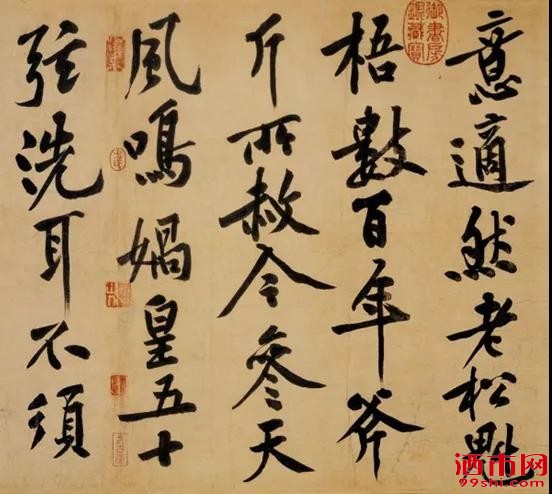 意適然老松魁
梧數百年斧
斤所赦今參天
風鳴媧皇五十
弦洗耳不須
御書房鑑藏寶
酒市网
99shi.com